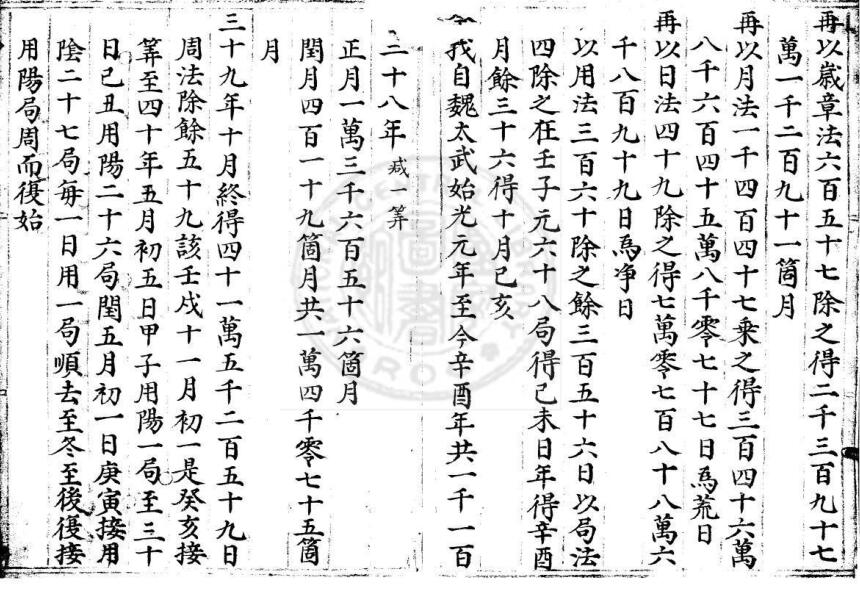 再以嵗章法六百五十七除之得二千三百九十七
萬一千二百九十一箇月
再以月法一千四百四十七乘之得三百四十六萬
八千六百四十五萬八千零七十七日爲荒日
再以日法四十九除之得七萬零七百八十八萬六
千八百九十九日爲净日
以用法三百六十除之餘三百五十六日以局法
四除之在壬子元六十八局得己未日年得辛酉
月餘三十六得十月己亥
一我自魏太武始光元年至今辛酉年共一千一百
二十八年 减一筭
正月一萬三千六百五十六箇月
閏月四百一十九箇月共一萬四千零七十五箇
月
三十九年十月終得四十一萬五千二百五十九日
周法除餘五十九該壬戌十一月初一是癸亥接
筭至四十年五月初五日甲子用陽一局至三十
日己丑用陽二十六局閏五月初一日庚寅接用
陰二十七局每一日用一局順去至冬至後復接
用陽局周而復始